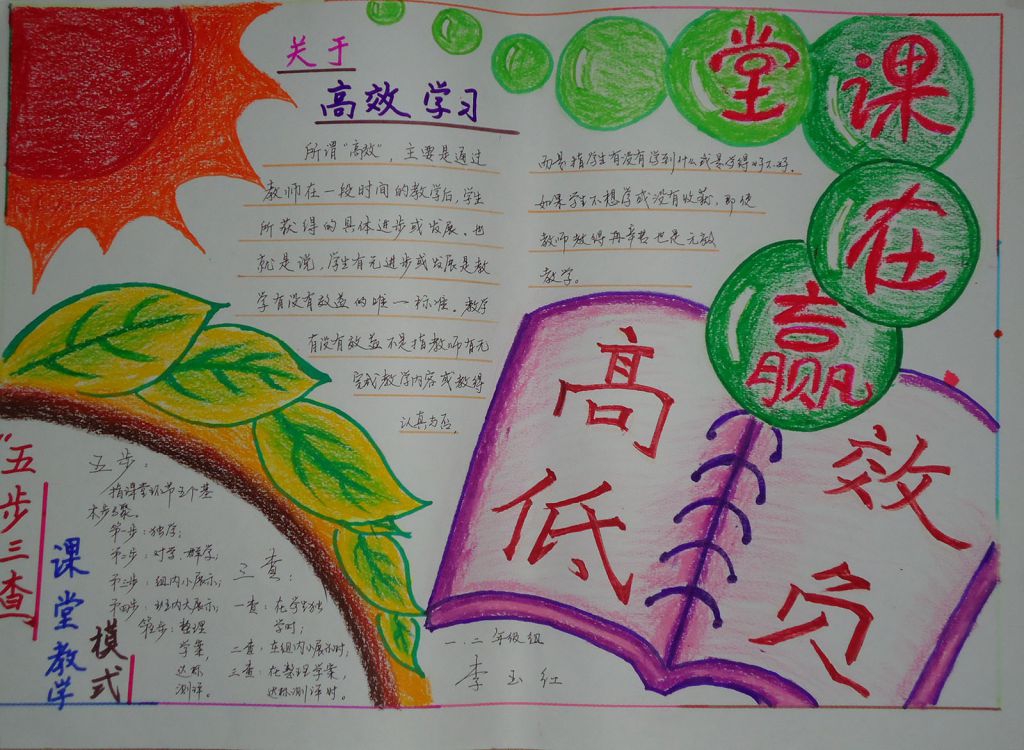 关于
高效学习
所谓“高效”，主要是通过
教师在一段时间的教学后，学生
所获得的具体进步或发展。也
就是说，学生有无进步或发展是教
学有没有效益的唯一标准。教学
有没有效益不是指教师有无
完成教学内容或教得
认真与否，
而是指学生有没有学到什么或是学得好不好。
如果学生不想学或没有收获，即使
教师教得再辛苦也是无效
教学。
课
堂
在
赢
高效
低负
“五步三查”
课堂教学
模式
五步：
指课堂环节五个基
本步骤。
第一步：独学；
第二步：对学、群学；
第三步：组内小展示；
第四步：班内大展示；
第五步：整理
学案，
达标
测评。
三查：
一查：在学生独
学时；
二查：在组内小展示时，
三查：在整理学案，
达标测评时。
一.二年级组
李玉红